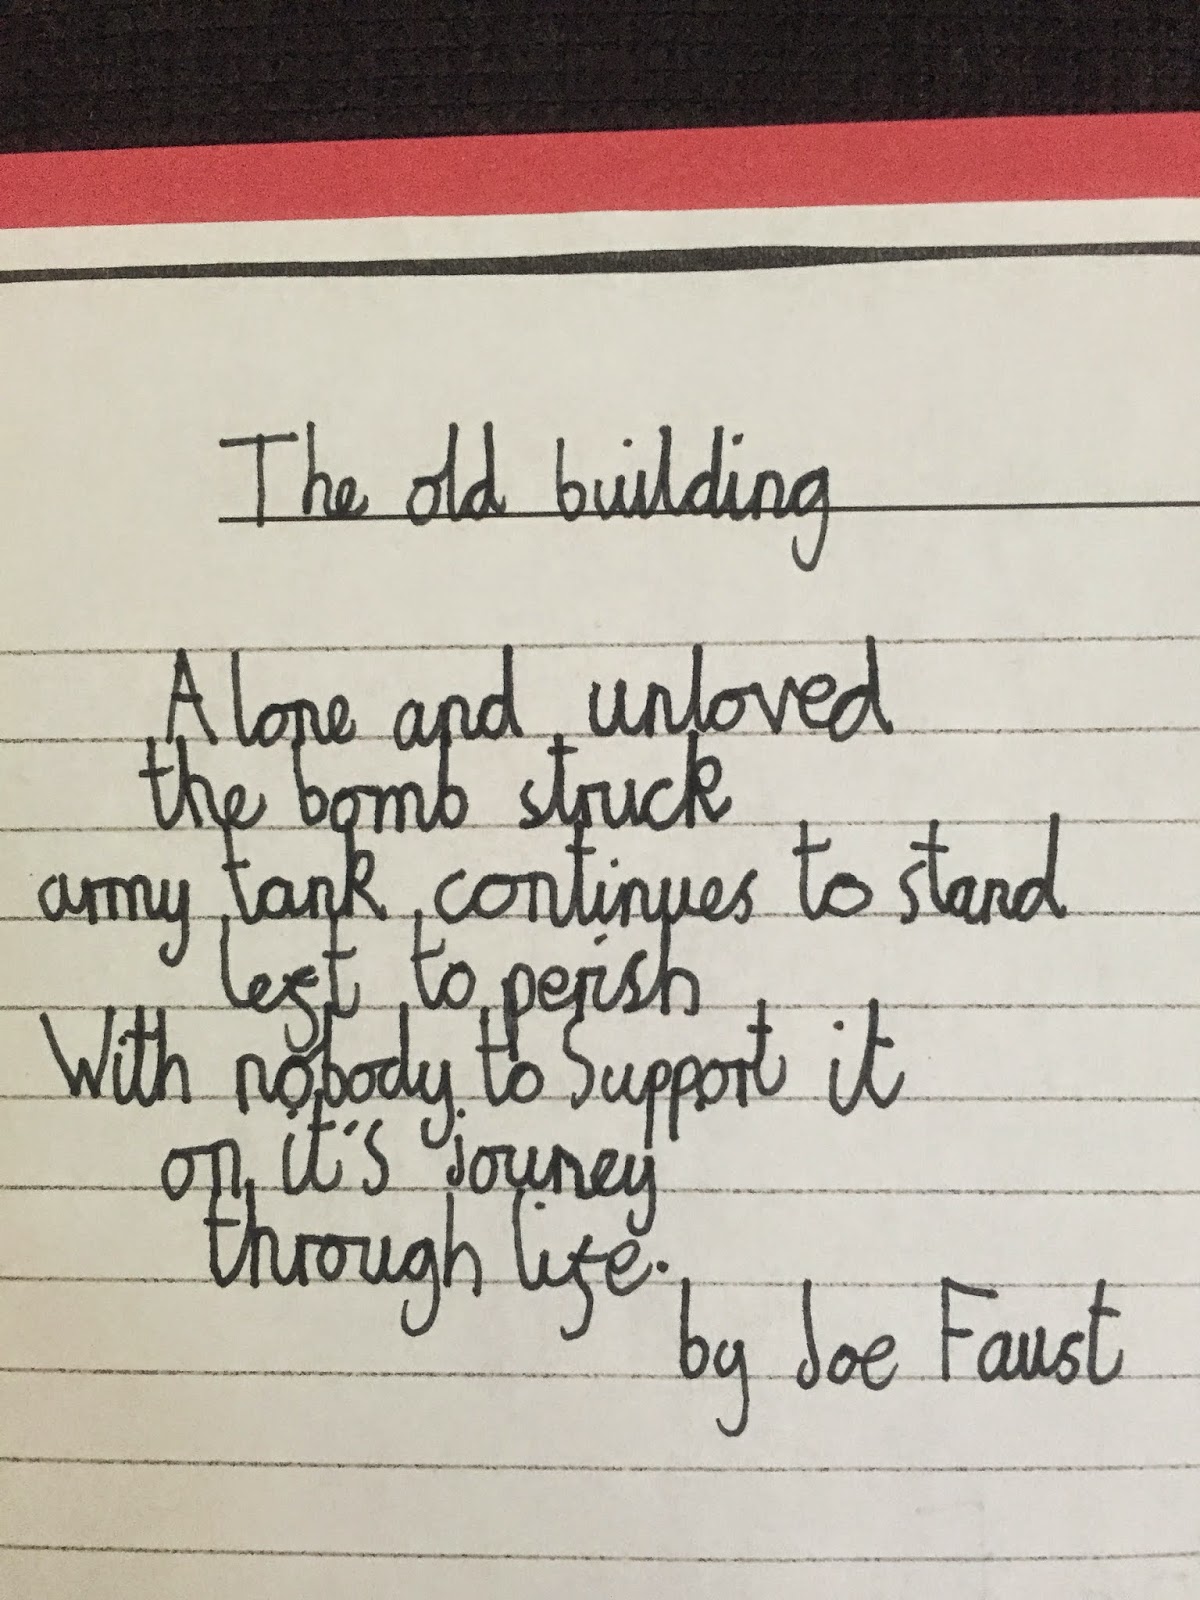 The old building
Alone and unloved
the bomb struck
army tank continues to stand
left to perish
With nobody to Support it
on it's jouney
through life.
by Joe Faust